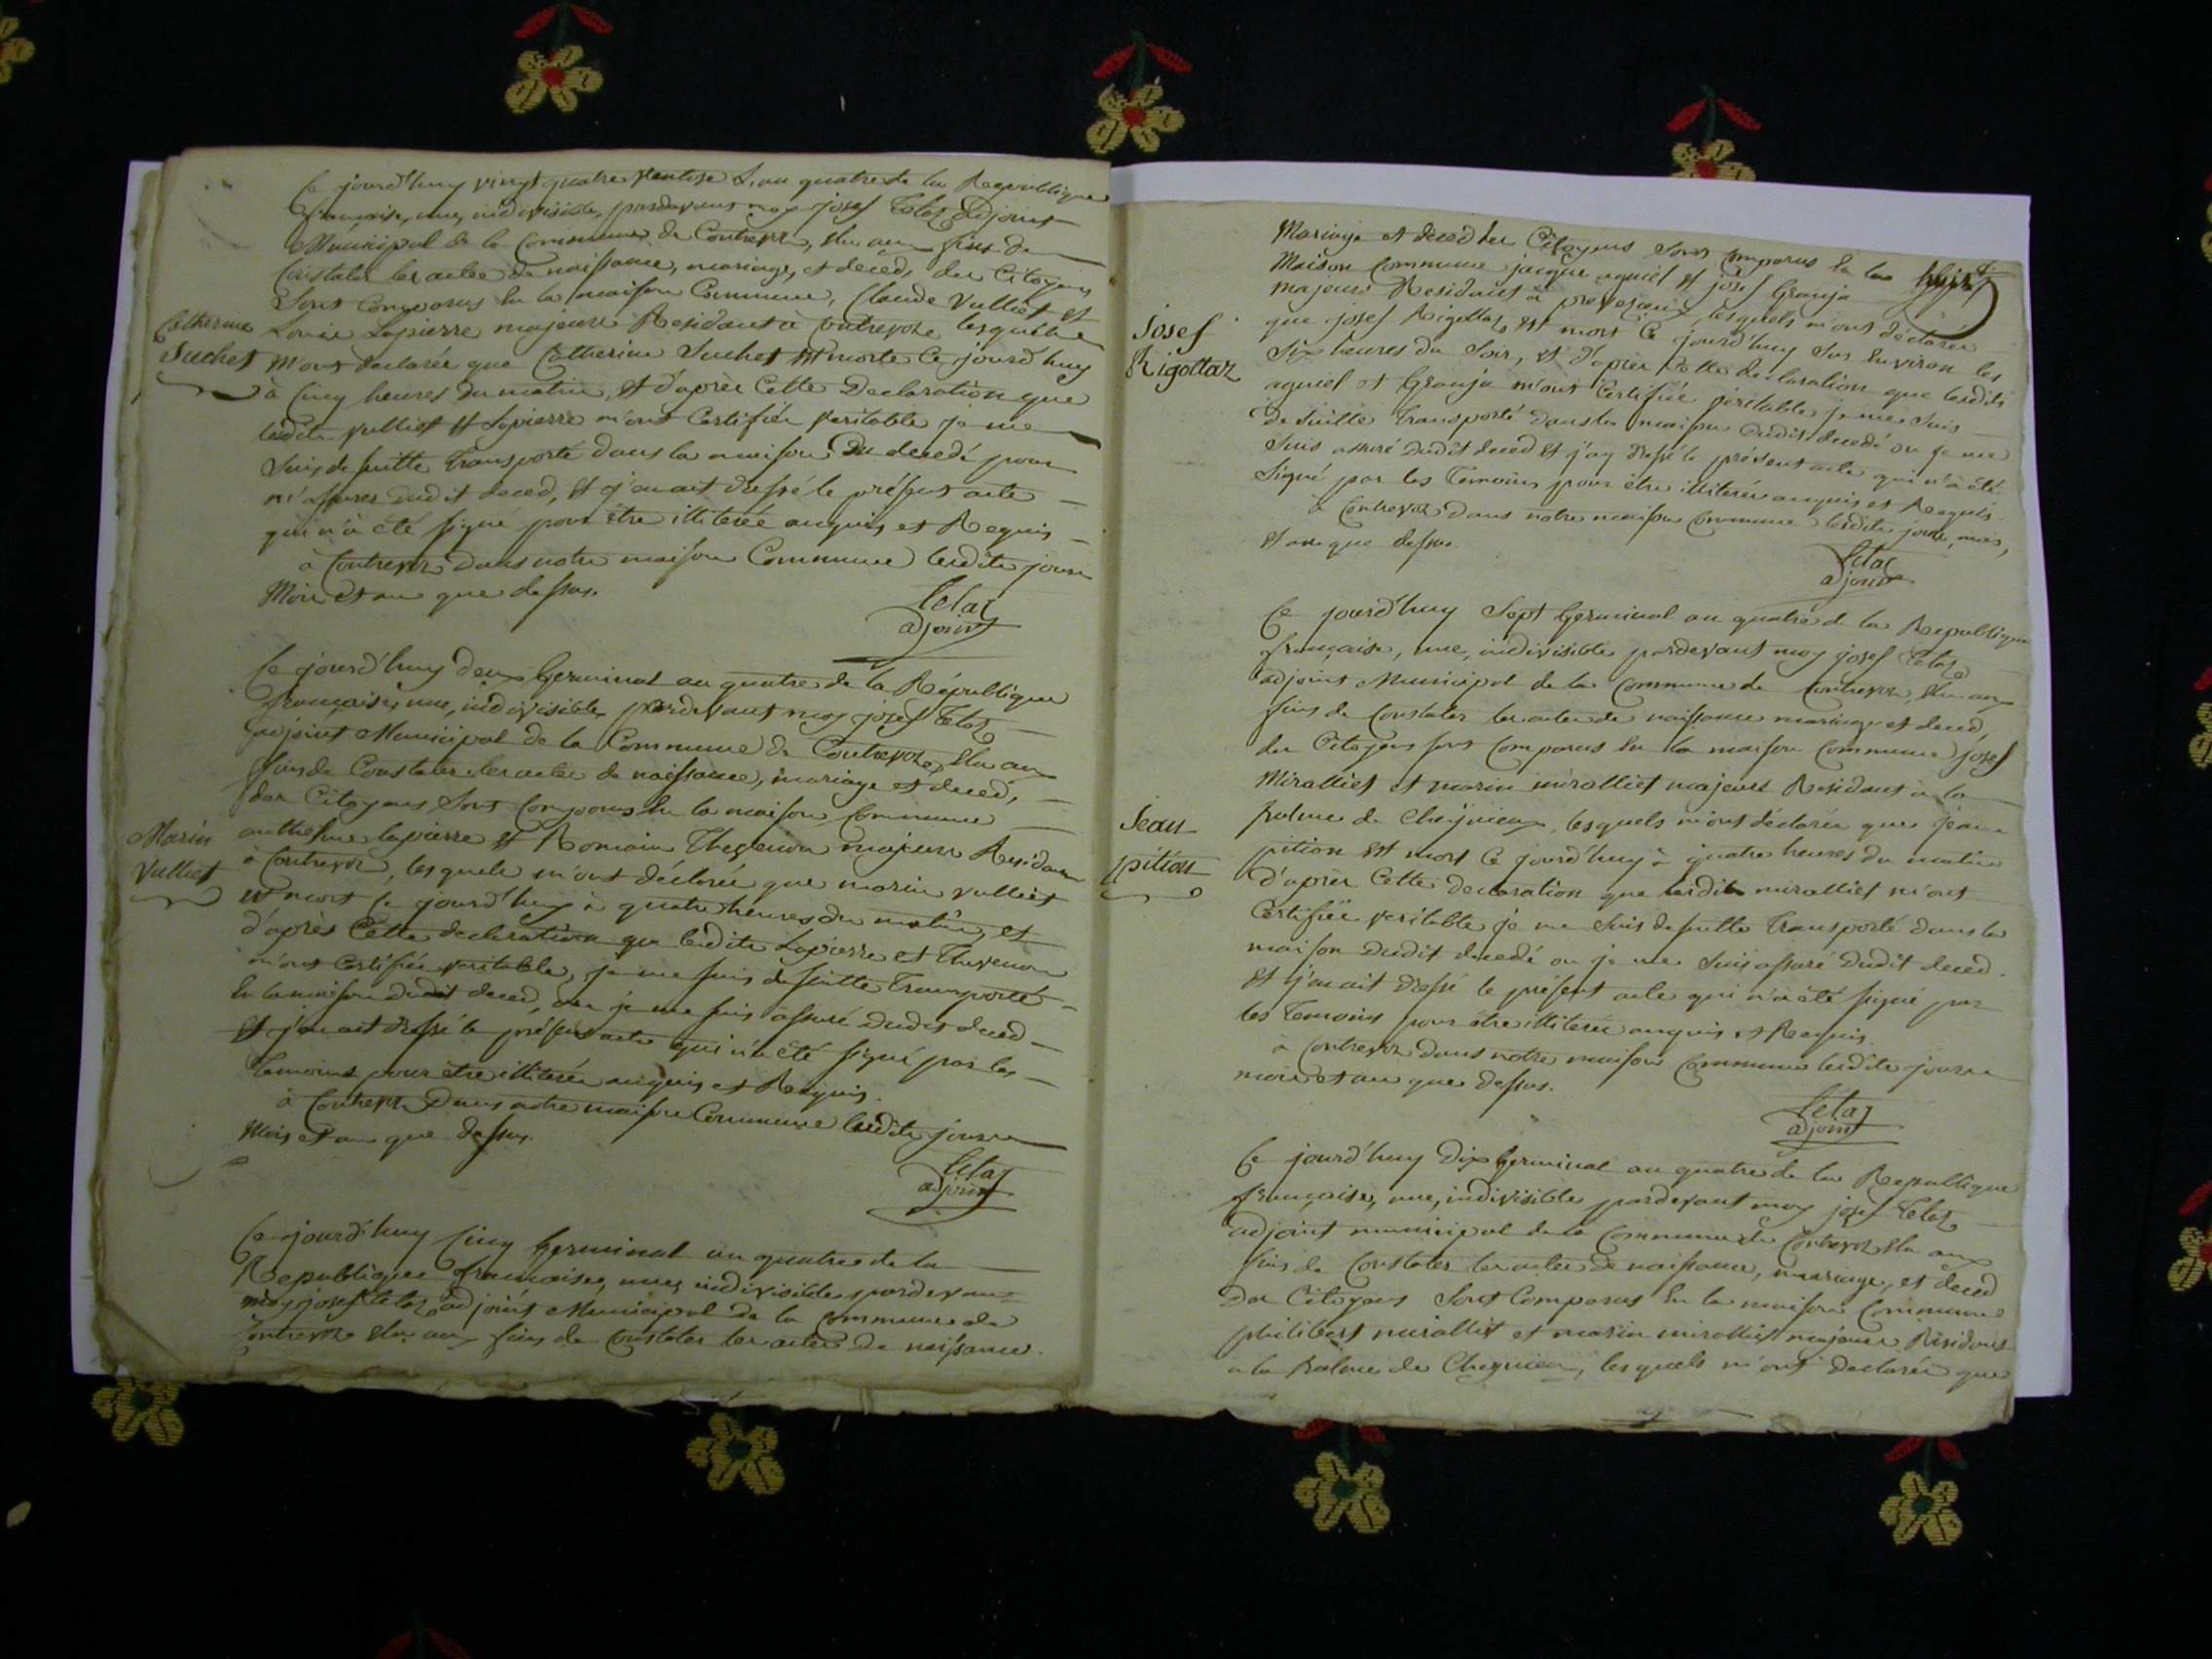 Ce jourd'huy vingt quatre Ventose L'an quatre de la Republique
francaise, une, indivisible, pardevant moy josef Tetaz adjoint
Municipal de la Commune de Contrevoz, elu aux fins de
Constater les actes de naissance, mariage, et decéd, des Citoyens
Sont Comparus En la maison Commune, Claude Vulliet et
Catherine
Suchet
Louis Lapierre majeurs Residants à Contrevoz lesquels
m'ont declarée que Catherine Suchet est morte Ce jourd'huy
à Cinq heures du matin, et d'après Cette Declaration que
lesdits Vulliet et Lapierre m'ont Certifiée veritable je me
Suis de suitte Transporté dans la maison du decedé pour
m'assurer dudit deced, et j'en ait dressé le présent acte
qui n'à été signé pour être illiterée enquis et Requis
à Contrevoz dans notre maison Commune lesdits jours
Mois et an que dessus.
Tetaz
adjoint
Ce jourd'huy deux Germinal an quatre de la République
française, une, indivisible, pardevant moy josef Tetaz
adjoint Municipal de la Commune de Contrevoz, elu aux
fins de Constater les actes de naissance, mariage et deced,
des Citoyens Sont Comparus En la maison Commune
Marin
Vulliet
anthelme lapierre et Romain Thevenon majeurs Residans
à Contrevoz, lesquels m'ont déclarée que marin vulliet
est mort Ce jourd'huy à quatre heures du matin, et
d'après Cette declaration que lesdits Lapierre et Thevenon
m'ont Certifiée veritable, je me suis de suitte Transporté
En la maison dudit deced, ou je me suis assuré dudit deced
et j'en ait dressé le présent acte qui n'a été signé par les
Temoins pour être illiterée enquis et Requis.
à Contrevoz Dans notre maison Commune lesdits jours
Mois et an que dessus.
Tetaz
adjoint
Ce jourd'huy Cinq Germinal an quatre de la
Republique francaise, une, indivisible pardevant
moy josef Tetaz adjoint Municipal de la Commune de
Contrevoz elu aux fins de Constater les actes de naissance.
Mariage et deced des Citoyens Sont Comparus En la
huit
Maison Commune jacque aguiet et josef Granja
majeurs Residants à lesquels m'ont déclarée
Josef
Rigottaz
que josef Rigottaz est mort Ce jourd'huy Sur Environ les
Six heures du Soir, et d'après Cette declaration que lesdits
aguiet et Granja m'ont Certifiée véritable je me Suis
de Suitte Transporté dans la maison dudit decedé ou je me
Suis assuré dudit deced et j'ay dressé le présent acte qui n'à été
Signé par les Temoins pour être illiterée enquis et Requis.
à Contrevoz Dans notre maison Commune lesdits jours, mois,
et an que dessus.
Tetaz
adjoint
Ce jourd'huy Sept Germinal an quatre de la Republique
française, une, indivisible pardevant moy josef Tetaz
adjoint Municipal de la Commune de Contrevoz, elu aux
fins de Constater les actes de naissance mariage et deced,
des Citoyens sont Comparus En la maison Commune josef
Miralliet et marin miralliet majeurs Residants à la
Jean
pition
palme de Cheignieux, lesquels m'ont déclarée que jean
pition est mort Ce jourd'huy à quatre heures du matin
d'après Cette declaration que lesdits miralliet m'ont
Certifiée veritable je me Suis de suitte Transporté dans la
maison dudit decedé ou je me Suis assuré dudit deced.
et j'en ait dressé le présent acte qui n'à été signé par
les Temoins pour être illiterée enquis et Requis.
à Contrevoz dans notre maison Commune lesdits jours
mois et an que dessus.
Tetaz
adjoint
Ce jourd'huy Dix Germinal an quatre de la Republique
française, une, indivisible pardevant moy josef Tetaz
adjoint municipal de la Commune de Contrevoz elu aux
fins de Constater les actes de naissance, mariage, et deced
Des Citoyens Sont Comparus En la maison Commune
philibert miralliet et marin miralliet majeurs Residans
a la Balme de Chegnieu, lesquels m'ont Declarée que